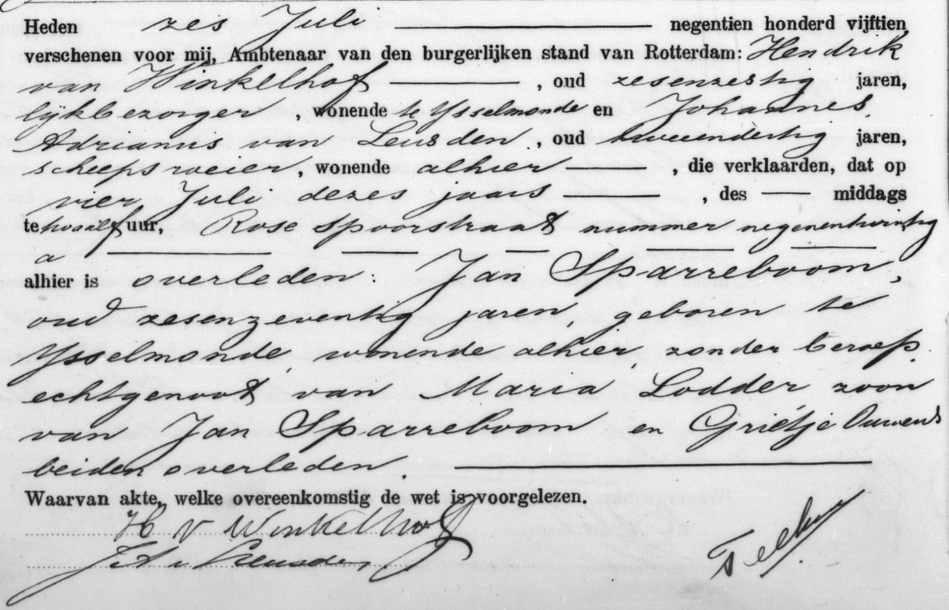 Heden zes Juli negentien honderd vijftien
verschenen voor mij, Ambtenaar van den burgerlijken stand van Rotterdam: Hendrik
van Winkelhof, oud zesenzestig jaren,
lijkbezorger, wonende te IJsselmonde en Johannes
Adrianus van Leusden, oud tweeendertig jaren,
scheepsroeier, wonende alhier, die verklaarden, dat op
vier Juli dezes jaars, des middags
te twaalf uur, Rose Spoorstraat nummer negenentwintig
a
alhier is overleden: Jan Sparreboom,
oud zesenzeventig jaren, geboren te
IJsselmonde, wonende alhier, zonder beroep,
echtgenoot van Maria Lodder zoon
van Jan Sparreboom en Grietje Ouwens
beiden overleden
Waarvan akte, welke overeenkomstig de wet is voorgelezen.
H v Winkelhof
J A v Leusden